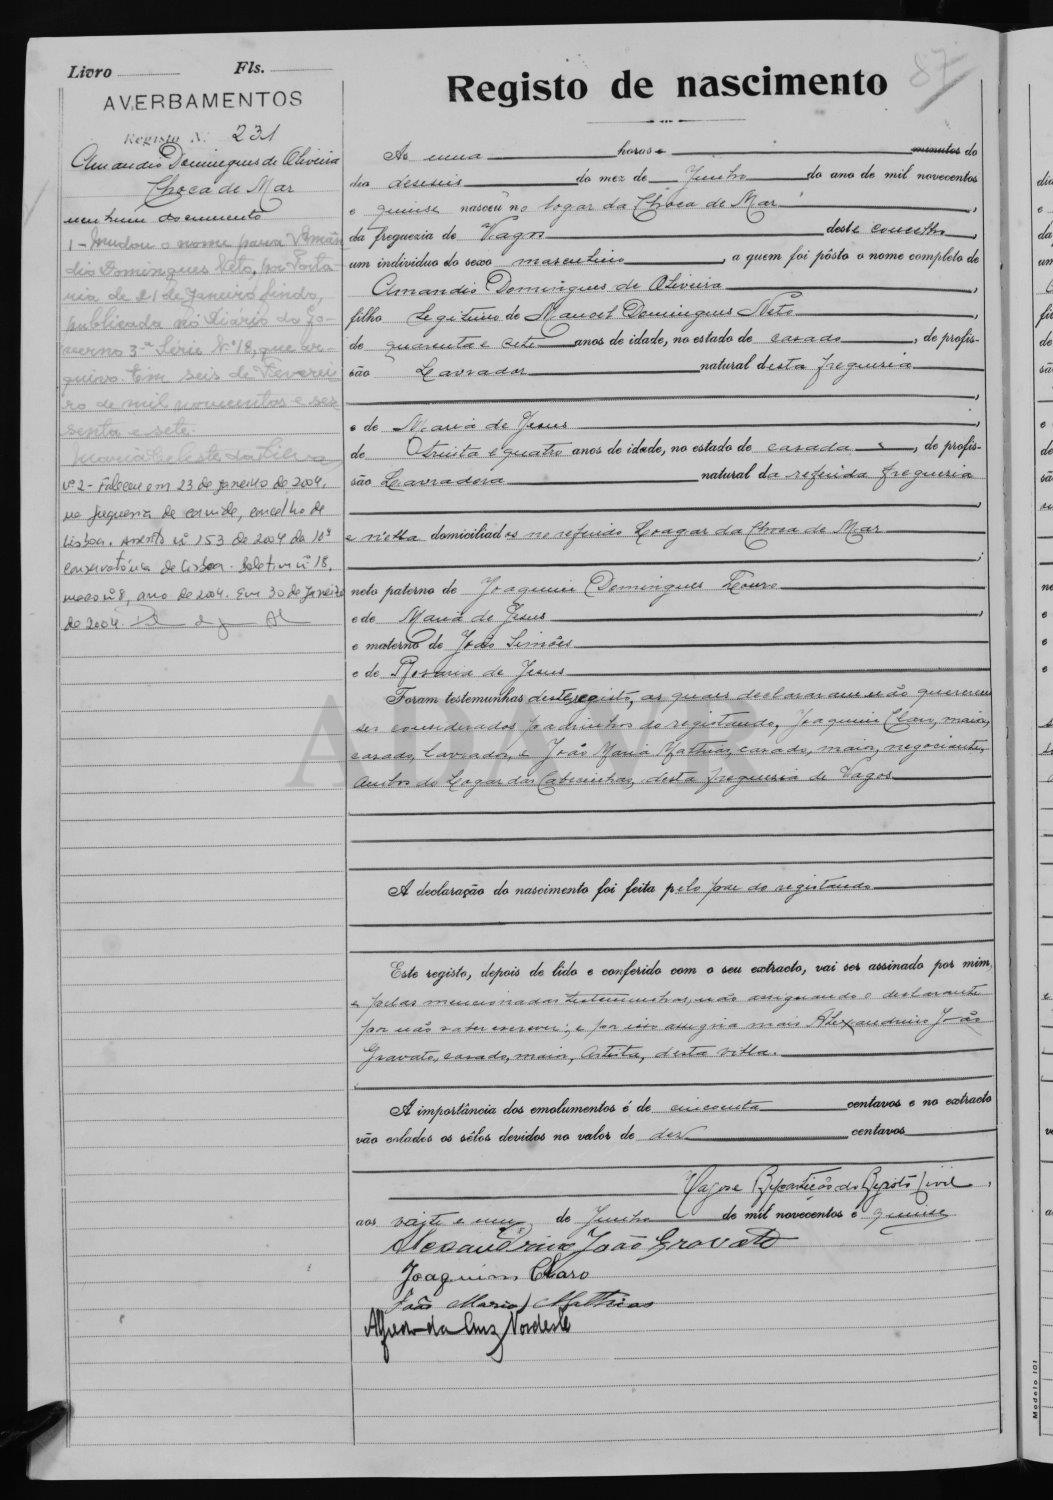 Livro Fls.
AVERBAMENTOS
Registo N.º 231
Amandio Domingues de Oliveira
Choca de Mar
nenhum documento
1 - Mudou o nome para Amân-
dio Domingues Neto, por Porta-
ria de 21 de Janeiro findo,
publicada no Diário do Go-
verno 3ª Série Nº 18, que ar-
quivo. Em seis de Feverei-
ro de mil novecentos e ses-
senta e sete.
Maria Celeste da Silva
nº 2 - Faleceu em 23 de janeiro de 2004,
na freguesia de carnide, concelho de
Lisboa. Assento nº 153 de 2004 da 10ª
conservatória de Lisboa. Boletim nº 18,
maço nº 8, ano de 2004. Em 30 de Janeiro
de 2004.
87
Registo de nascimento
Ás uma horas minutos do
dia deseseis do mez de Junho do ano de mil novecentos
e quinse nasceu no logar da Choca de Mar
da freguezia de Vagos deste concelho,
um individuo do sexo masculino, a quem foi pôsto o nome completo de
Amandio Domingues de Oliveira
filho legitimo de Manoel Domingues Neto
de quarenta e sete anos de idade, no estado de casado, de profis-
são Lavrador natural desta freguesia
e de Maria de Jesus
de trinta e quatro anos de idade, no estado de casada, de profis-
são Lavradora natural da referida freguesia
e nella domiciliados no referido Logar da Choca de Mar
neto paterno de Joaquim Domingues Louro
e de Maria de Jesus
e materno de João Simões
e de Rosaria de Jesus
Foram testemunhas deste registo, as quaes declararam não quererem
ser considerados padrinhos do registando, Joaquim Claro, maior,
casado, lavrador, e João Maria Mathias, casado, maior, negociante,
ambos do Logar das Cabecinhas, desta freguesia de Vagos
A declaração do nascimento foi feita pelo pae do registando
Este registo, depois de lido e conferido com o seu extracto, vai ser assinado por mim,
e pelas mencionadas testemunhas, não assignando o declarante
por não saber escrever; e por isso assigna mais Alexandrino João
Gravato, casado, maior, artista, desta villa.
A importância dos emolumentos é de cincoenta centavos e no extracto
vão colados os sêlos devidos no valor de dez centavos
Vagos e Repartição do Registo Civil,
aos vinte e um de Junho de mil novecentos e quinse
Alexandrino João Gravato
Joaquim Claro
João Maria Mathias
Alfredo da Cruz Nordeste
Modelo 101